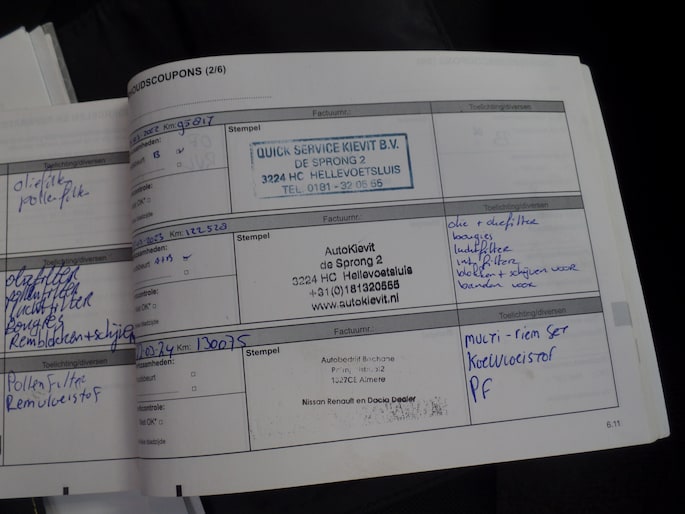 HOUDSCOUPONS (2/6)
Toelichting/diversen
oliefilter
pollenfilter
oliefilter
pollenfilter
luchtfilter
Bougies
Remblokken + schijven
Toelichting/diversen
Pollenfilter
Remvloeistof
Factuurnr.:
Toelichting/diversen
Km: 95817
Stempel
QUICK SERVICE KIEVIT B.V.
DE SPRONG 2
3224 HC HELLEVOETSLUIS
TEL. 0181 - 32 05 65
Factuurnr.:
Toelichting/diversen
2023 Km: 122528
Stempel
AutoKievit
de Sprong 2
3224 HC Hellevoetsluis
+31(0)181320565
www.autokievit.nl
olie + oliefilter
bougies
luchtfilter
int. filter
blokken + schijven voor
banden voor
Factuurnr.:
Toelichting/diversen
03-24 Km: 130075
Stempel
Autobedrijf
Almere
Nissan Renault en Dacia Dealer
MULTI-riem set
Koelvloeistof
PF
6.11